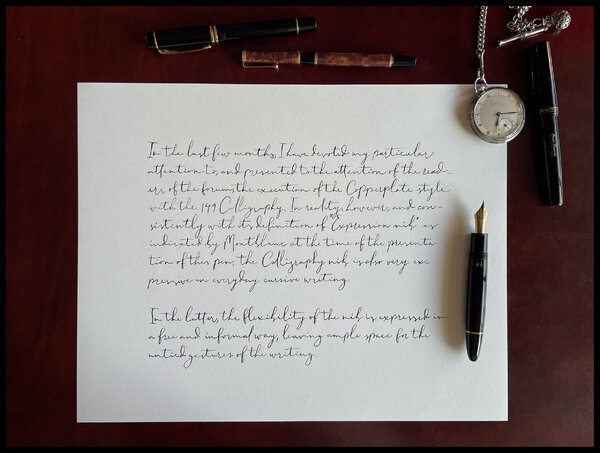 In the last few months, I have devoted my particular
attention to, and presented to the attention of the read-
ers of the forum, the execution of the Copperplate style
with the 149 Calligraphy. In reality, however, and con-
sistently with its definition of "Expression nib" as
indicated by Montblanc at the time of the presenta-
tion of this pen, the Calligraphy nib is also very exc
pressive in everyday cursive writing.
In the latter, the flexibility of the nib is expressed in
a free and informal way, leaving ample space for the
untied gestures of the writing.